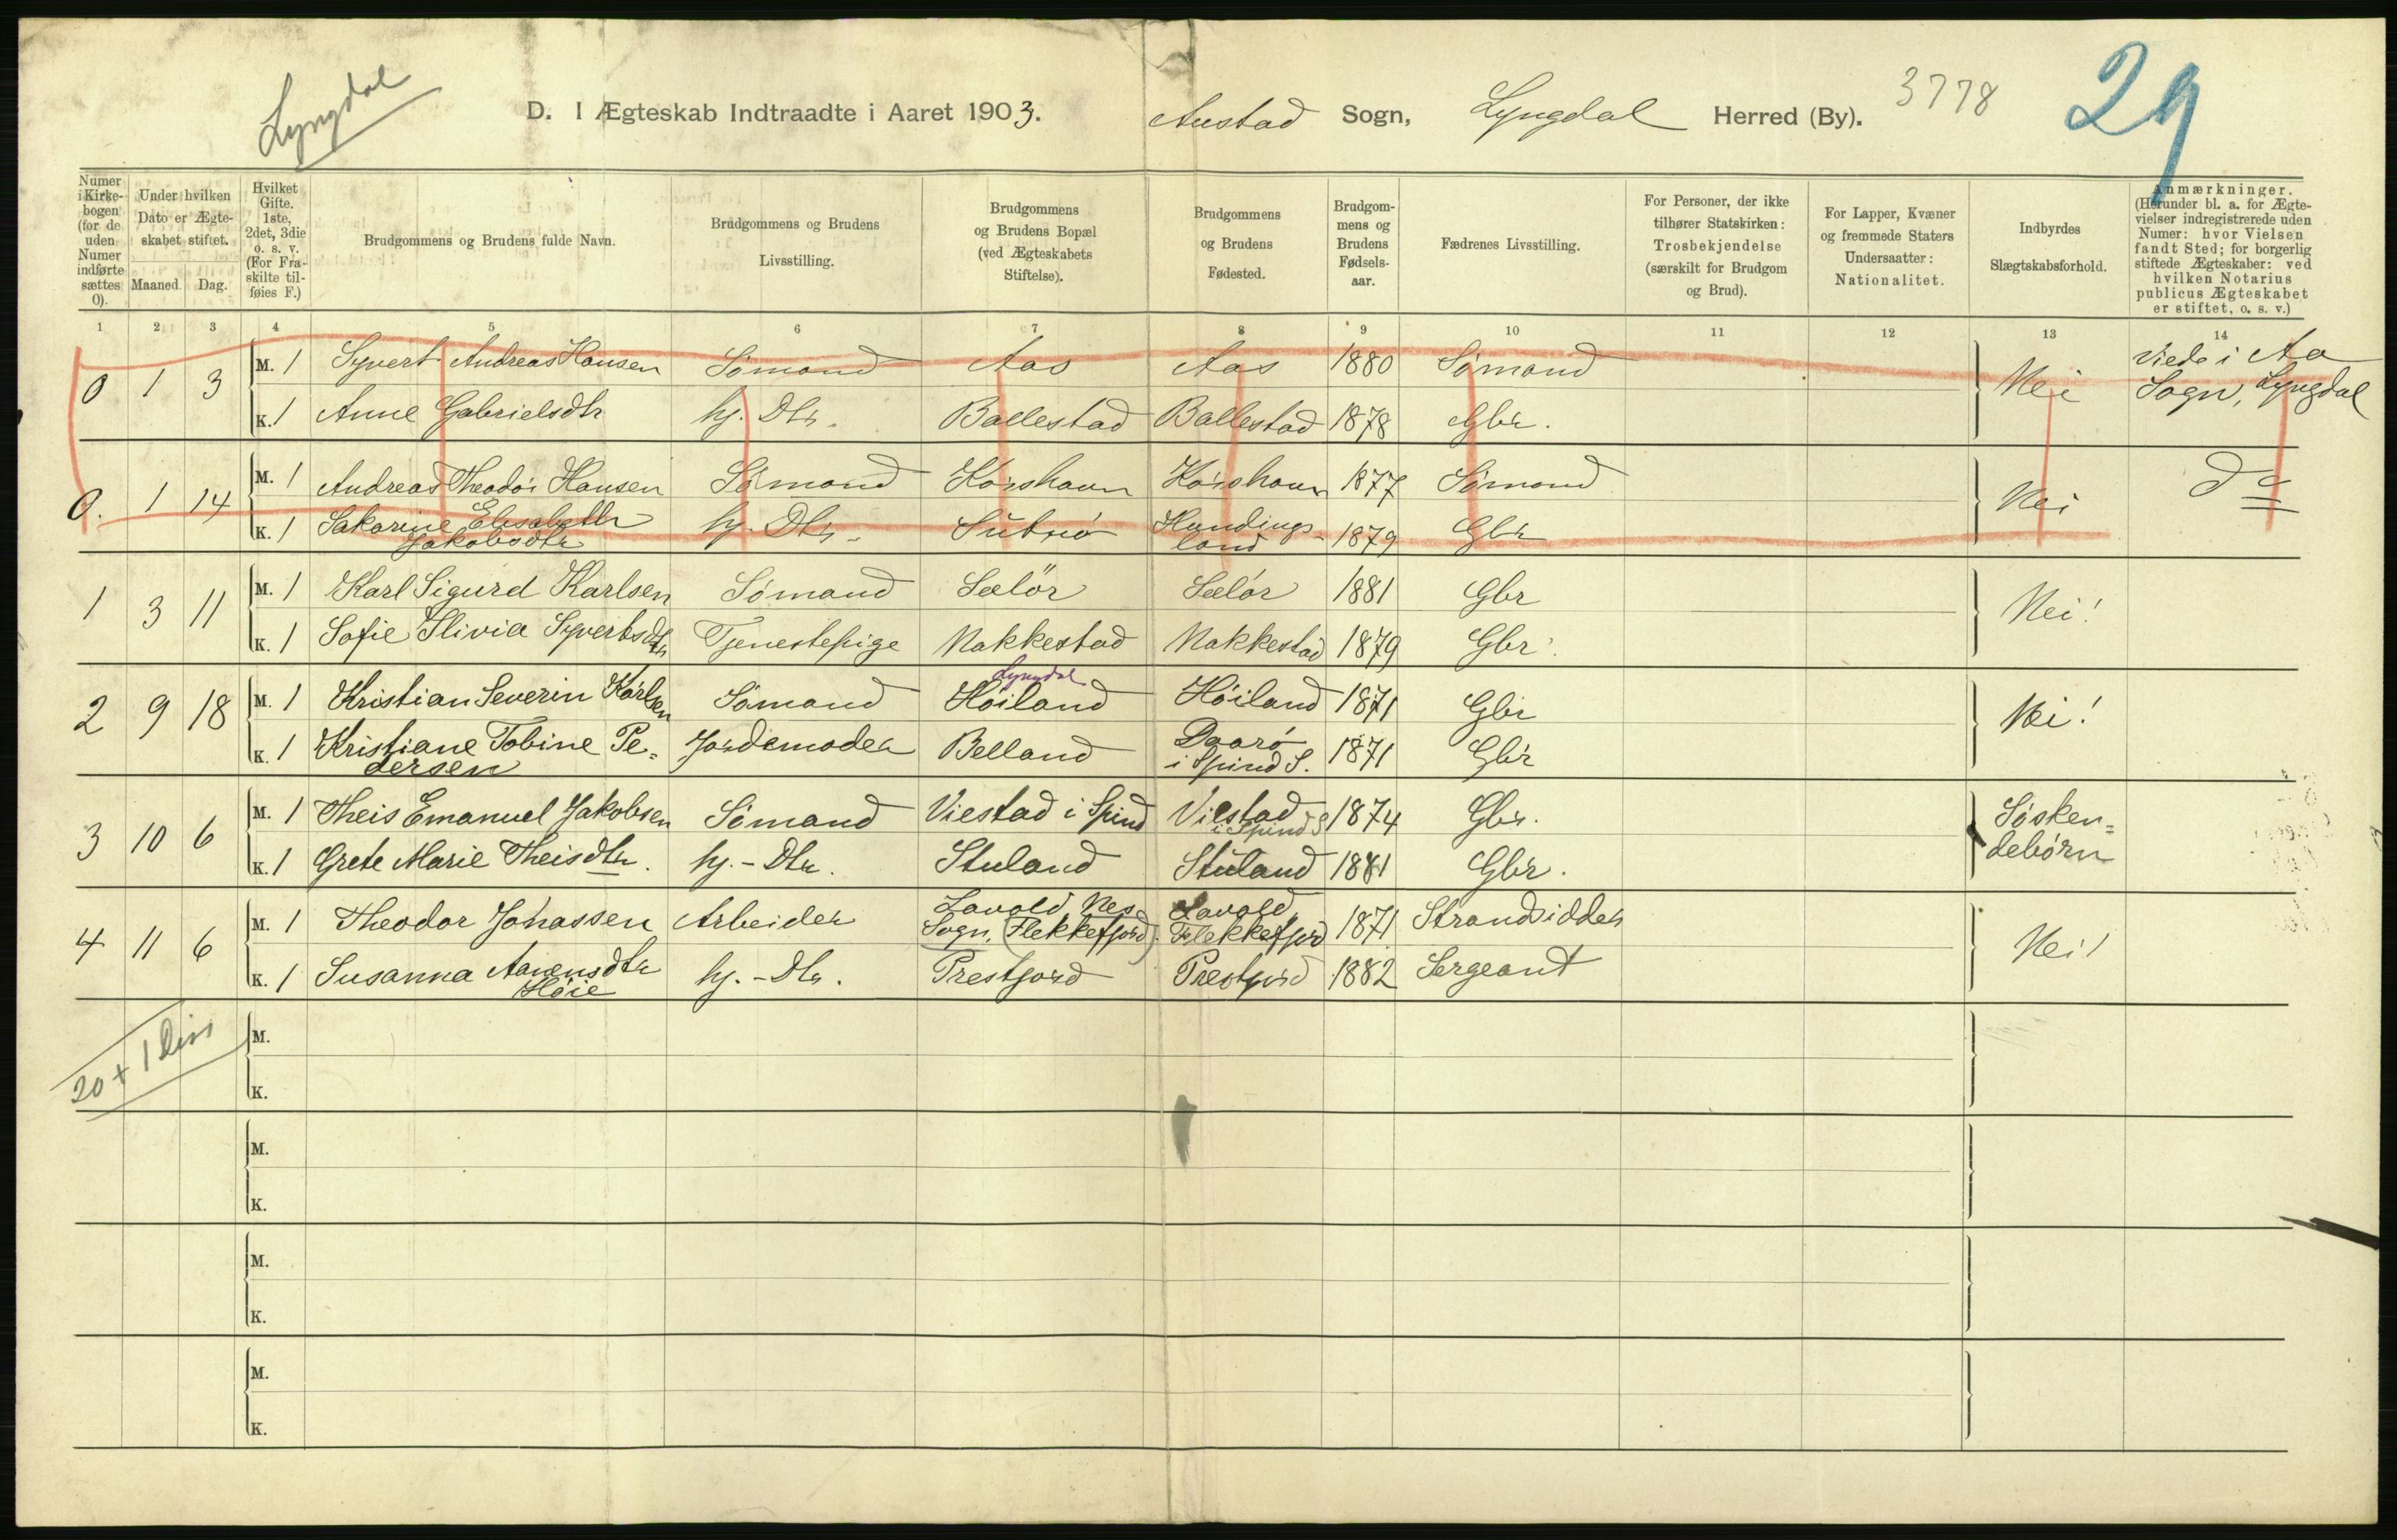 Lyngdal
D. I Ægteskab Indtraadte i Aaret 1903.
Austad Sogn, Lyngdal Herred (By).
3778
29
Numer i Kirke-bogen (for de uden Numer indførte sættes 0).
Under hvilken Dato er Ægte-skabet stiftet.
Maaned. Dag.
Hvilket Gifte. 1ste, 2det, 3die o. s. v. (For Fra-skilte til-føies F.)
Brudgommens og Brudens fulde Navn.
Brudgommens og Brudens Livsstilling.
Brudgommens og Brudens Bopæl (ved Ægteskabets Stiftelse).
Brudgommens og Brudens Fødested.
Brudgom-mens og Brudens Fødsels-aar.
Fædrenes Livsstilling.
For Personer, der ikke tilhører Statskirken: Trosbekjendelse (særskilt for Brudgom og Brud).
For Lapper, Kvæner og fremmede Staters Undersaatter: Nationalitet.
Indbyrdes Slægtskabsforhold.
Anmærkninger. (Herunder bl. a. for Ægte-vielser indregistrerede uden Numer: hvor Vielsen fandt Sted; for borgerlig stiftede Ægteskaber: ved hvilken Notarius publicus Ægteskabet er stiftet, o. s. v.)
1 2 3 4 5 6 7 8 9 10 11 12 13 14
0 1 3 M. 1 Syvert Andreas Hansen Sømand Aas Aas 1880 Sømand Nei Viede i Aa Sogn, Lyngdal
K. 1 Anne Gabrielsdtr hj. Dtr. Ballestad Ballestad 1878 Gbr.
0. 1 14 M. 1 Andreas Theodor Hansen Sømand Korshavn Korshavn 1877 Sømand Nei do
K. 1 Sakarine Elisabeth Jakobsdtr hj. Dtr. Hundingsland 1879 Gbr
1 3 11 M. 1 Karl Sigurd Karlsen Sømand Sælør Sælør 1881 Gbr Nei!
K. 1 Sofie Slivia Syvertsdtr Tjenestepige Nakkestad Nakkestad 1879 Gbr.
Lyngdal
2 9 18 M. 1 Kristian Severin Karlsen Sømand Høiland Høiland 1871 Gbr Nei!
K. 1 Kristiane Tobine Pe=dersen Jordemoder Belland Daarø i Spind S. 1871 Gbr
3 10 6 M. 1 Theis Emanuel Jakobsen Sømand Viestad i Spind Viestad i Spind S 1874 Gbr. Søsken=debørn
K. 1 Grete Marie Theisdtr. hj. - Dtr. Stuland Stuland 1881 Gbr.
4 11 6 M. 1 Theodor Jonassen Arbeider Lavold Nes Sogn, (Flekkefjord). Lavold, Flekkefjord 1871 Strandsidder Nei!
K. 1 Susanna Aanensdtr Høie hj. - Dtr. Prestjord Prestjord 1882 Sergeant
20 + 1 Dis
M.
K.
M.
K.
M.
K.
M.
K.